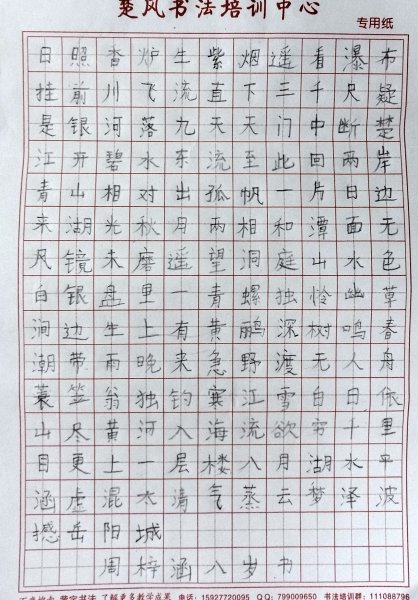 楚风书法培训中心
专用纸
日照香炉生紫烟遥看瀑布
挂前川飞流直下三千尺疑
是银河落九天天门中断楚
江开碧水东流至此回两岸
青山相对出孤帆一片日边
来湖光秋月两相和潭面无
风镜未磨遥望洞庭山水色
白银盘里一青螺独怜幽草
涧边生上有黄鹂深树鸣春
潮带雨晚来急野渡无人舟
蓑笠翁独钓寒江雪白日依
山尽黄河入海流欲穷千里
目更上一层楼八月湖水平
涵虚混太清气蒸云梦泽波
撼岳阳城
周梓涵八岁书
了解更多教学成果 电话:15927720095 QQ:799009650 书法培训群:111088796